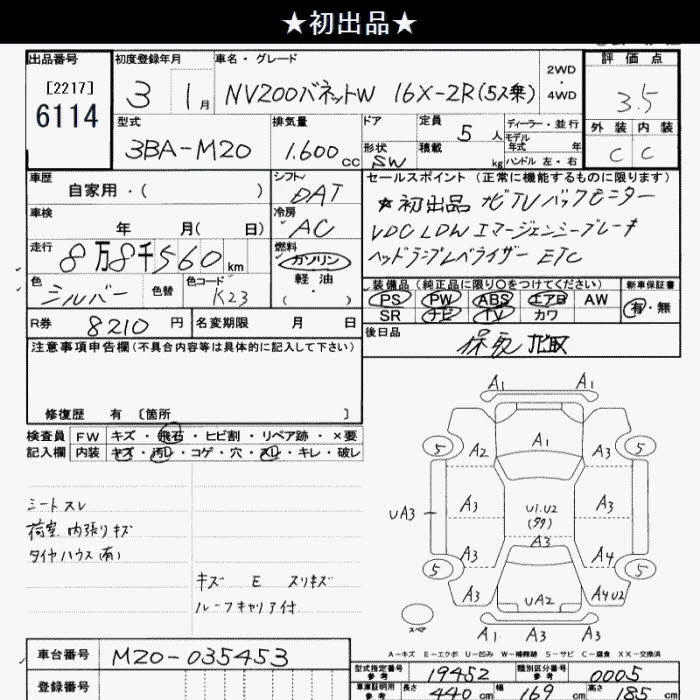 ★初出品★
出品番号 初度登録年月 車名・グレード 評価点
[2217] 6114 3 1月 NV200バネットW 16X-2R(5ス乗) 2WD・4WD 3.5
型式 排気量 ドア 定員 5人 ディーラー・並行 外装 内装
3BA-M20 1.600cc 形状 SW 積載 kg モデル年式 年式 ハンドル 左・右 C C
車歴 自家用・( ) シフト DAT セールスポイント (正常に機能するものに限ります)
車検 年 月( 日) 冷房 AC ★初出品 ナビTVバックモニター
走行 8万8千560km 燃料 ガソリン 軽油 ( ) VDC LDW エマージェンシーブレーキ
色 シルバー 色替 色コード K23 ヘッドランプレベライザー ETC
装備品 (純正品に限り○をつけてください) 新車保証書
PS PW ABS エアB AW 有・無
SR ナビ TV カワ
R券 8210円 名変期限 月 日 後日品 保 取
注意事項申告欄 (不具合内容等は具体的に記入して下さい)
修復歴 有 [箇所 ]
検査員 FW キズ・飛石・ヒビ割・リペア跡・×要
記入欄 内装 キズ・汚レ・コゲ・穴・スレ・キレ・破レ
シートスレ
荷室 内張りキズ
タイヤハウス(有)
キズ E スリキズ
ルーフキャリア付
A1 A1
5 A2 A1 5
UA3 A3 U1.U2 A3
(タタ)
A3
A3 A4
5 5
UA2 A4U2
スペア A1 A3 A1
A-キズ E-エクボ U-凹み W-補修跡 S-サビ C-腐食 XX-交換済
車台番号 M20-035453
登録番号
型式指定番号 参考 19452 類別区分番号 参考 0005
車庫証明用 参考 長さ 440cm 幅 169cm 高さ 185cm